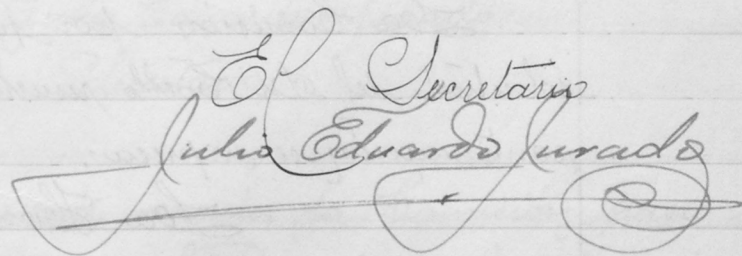 El Secretario
Julio Eduardo Jurado